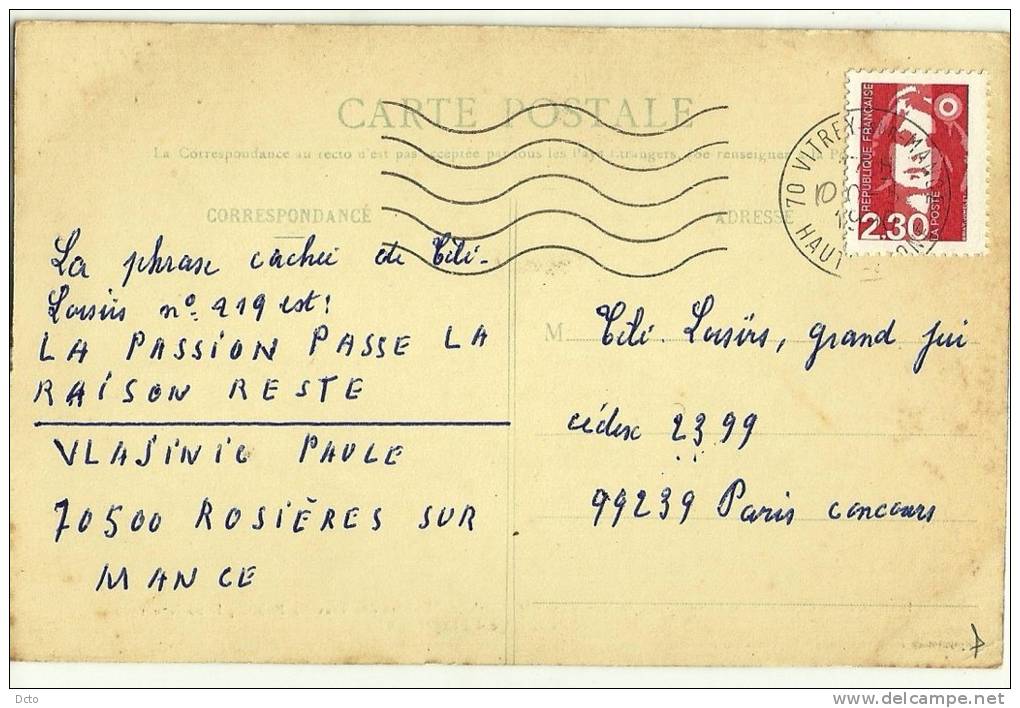 CARTE POSTALE
La Correspondance au recto n'est pas acceptée par tous les Pays étrangers,
CORRESPONDANCE
ADRESSE
70 VITREY
HAUTE
19
REPUBLIQUE FRANÇAISE
2.30
LA POSTE
La phrase cachée de Télé-
Loisirs nº 219 est:
LA PASSION PASSE LA
RAISON RESTE
VLAJINIC PAULE
70500 ROSIÈRES SUR
MANCE
M
Télé. Loisirs, grand jeu
cédex 2399
99239 Paris concours
Dcto
delcampe.net